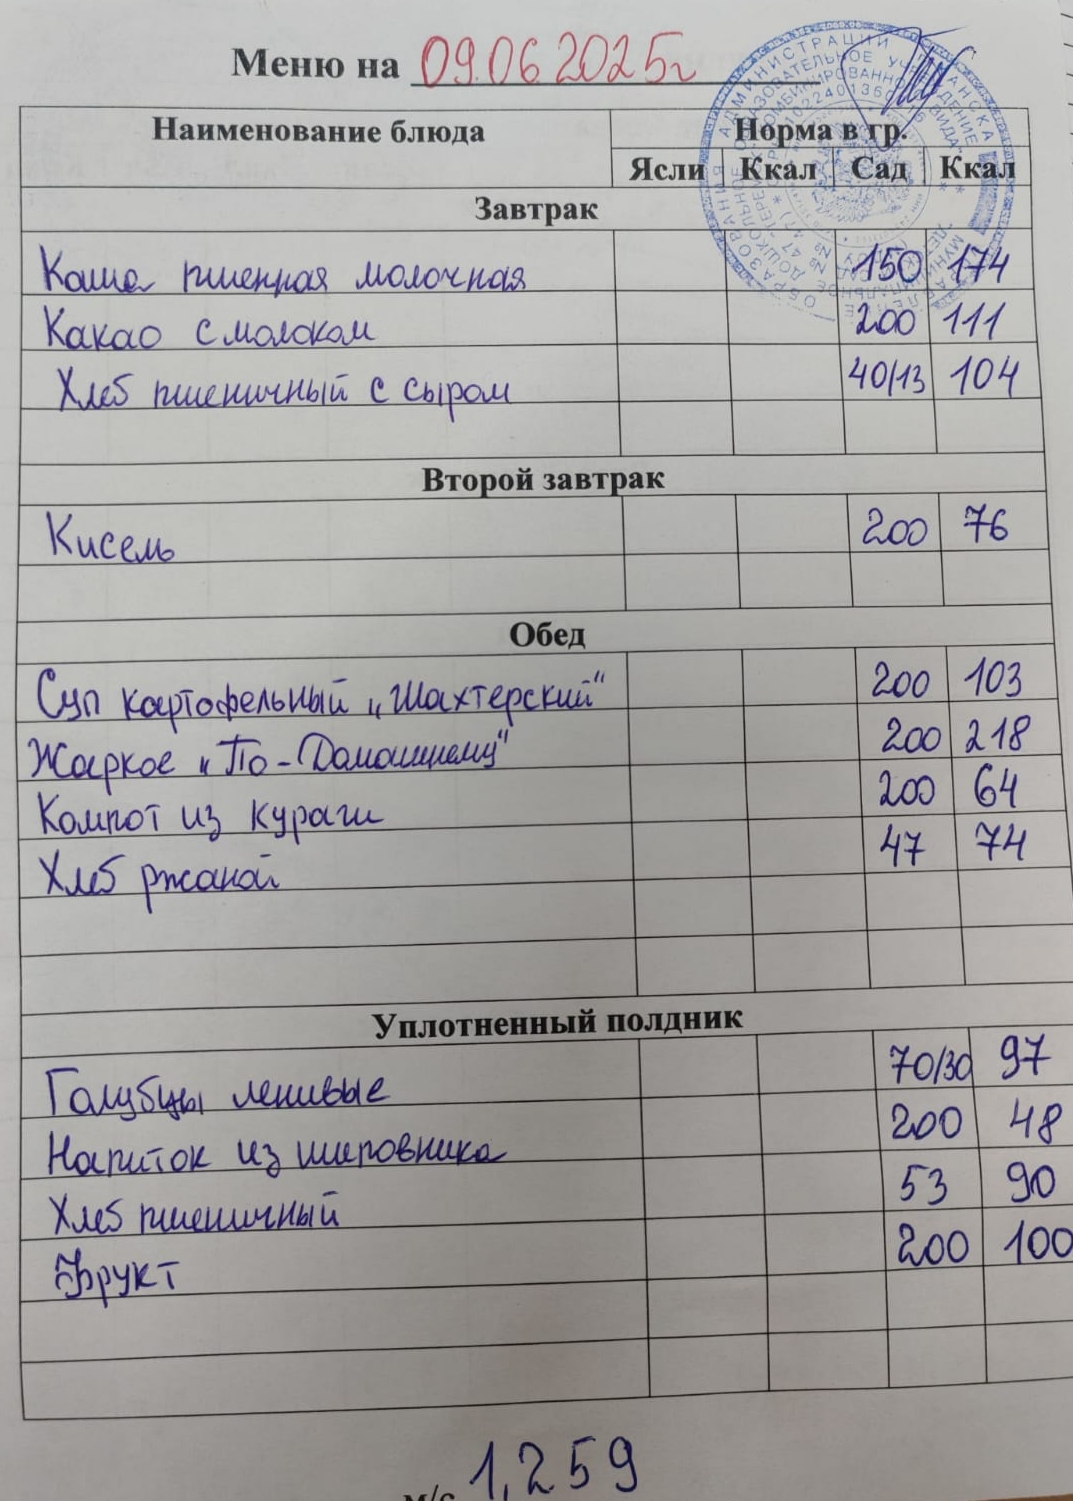 Меню на 09.06.2025г
Наименование блюда Норма в гр.
Ясли Ккал Сад Ккал
Завтрак
Каша пшенная молочная 150 174
Какао с молоком 200 111
Хлеб пшеничный с сыром 40/13 104
Второй завтрак
Кисель 200 76
Обед
Суп картофельный „Шахтерский“ 200 103
Жаркое „По-Домашнему“ 200 218
Компот из кураги 200 64
Хлеб ржаной 47 74
Уплотненный полдник
Голубцы ленивые 70/30 97
Напиток из шиповника 200 48
Хлеб пшеничный 53 90
Фрукт 200 100
м/с 1,259